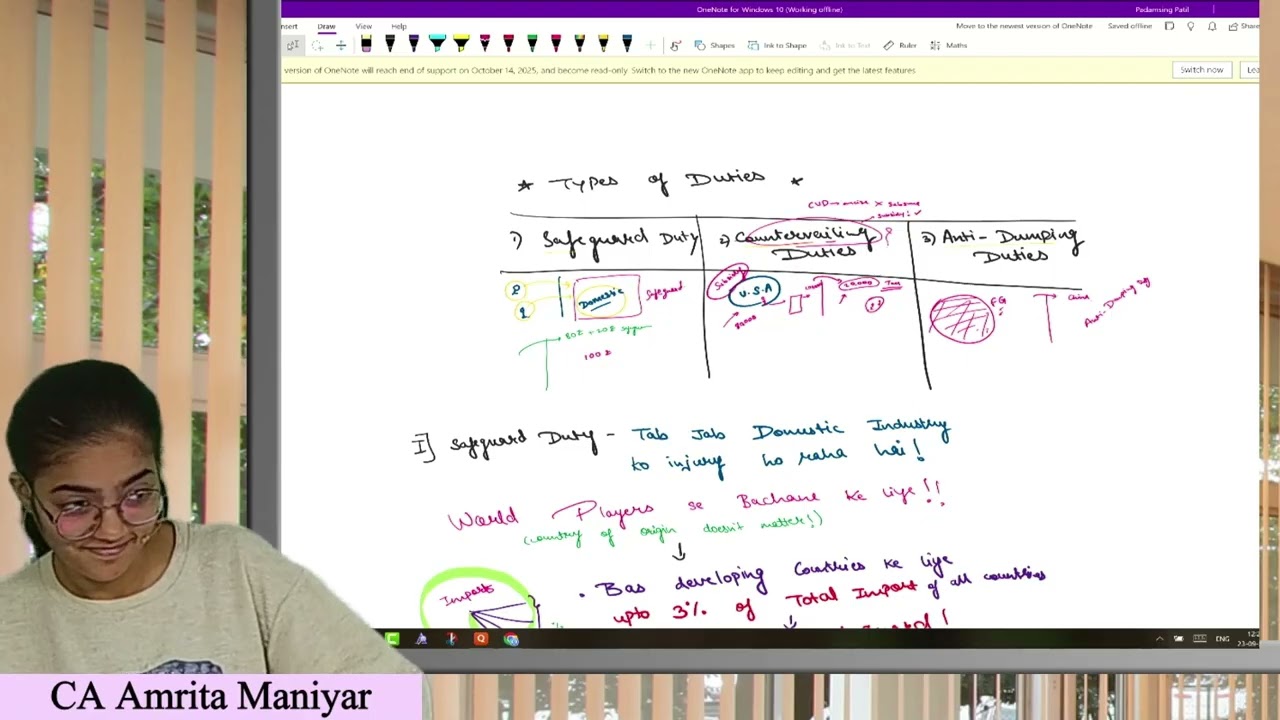 OneNote for Windows 10 (Working offline)
Padamsing Patil
nsert Draw View Help
Move to the newest version of OneNote Saved offline Share
Shapes Ink to Shape Ink to Text Ruler Maths
version of OneNote will reach end of support on October 14, 2025, and become read-only. Switch to the new OneNote app to keep editing and get the latest features
Switch now
★ Types of Duties ★
CVD
subsidy! ✓
1) Safeguard Duty
2) Countervailing Duties ?
3) Anti-Dumping Duties
Domestic
Safeguard
Subsidy
U.S.A
20,000
FG
China
Anti-Dumping
100
I] Safeguard Duty - Tab Jab Domestic Industry
to injury ho raha hai!
World Players se Bachane ke liye!!
(country of origin doesn't matter!)
↓
• Bas developing Countries ke liye
upto 3% of Total Import of all countries
Imports
ENG
CA Amrita Maniyar